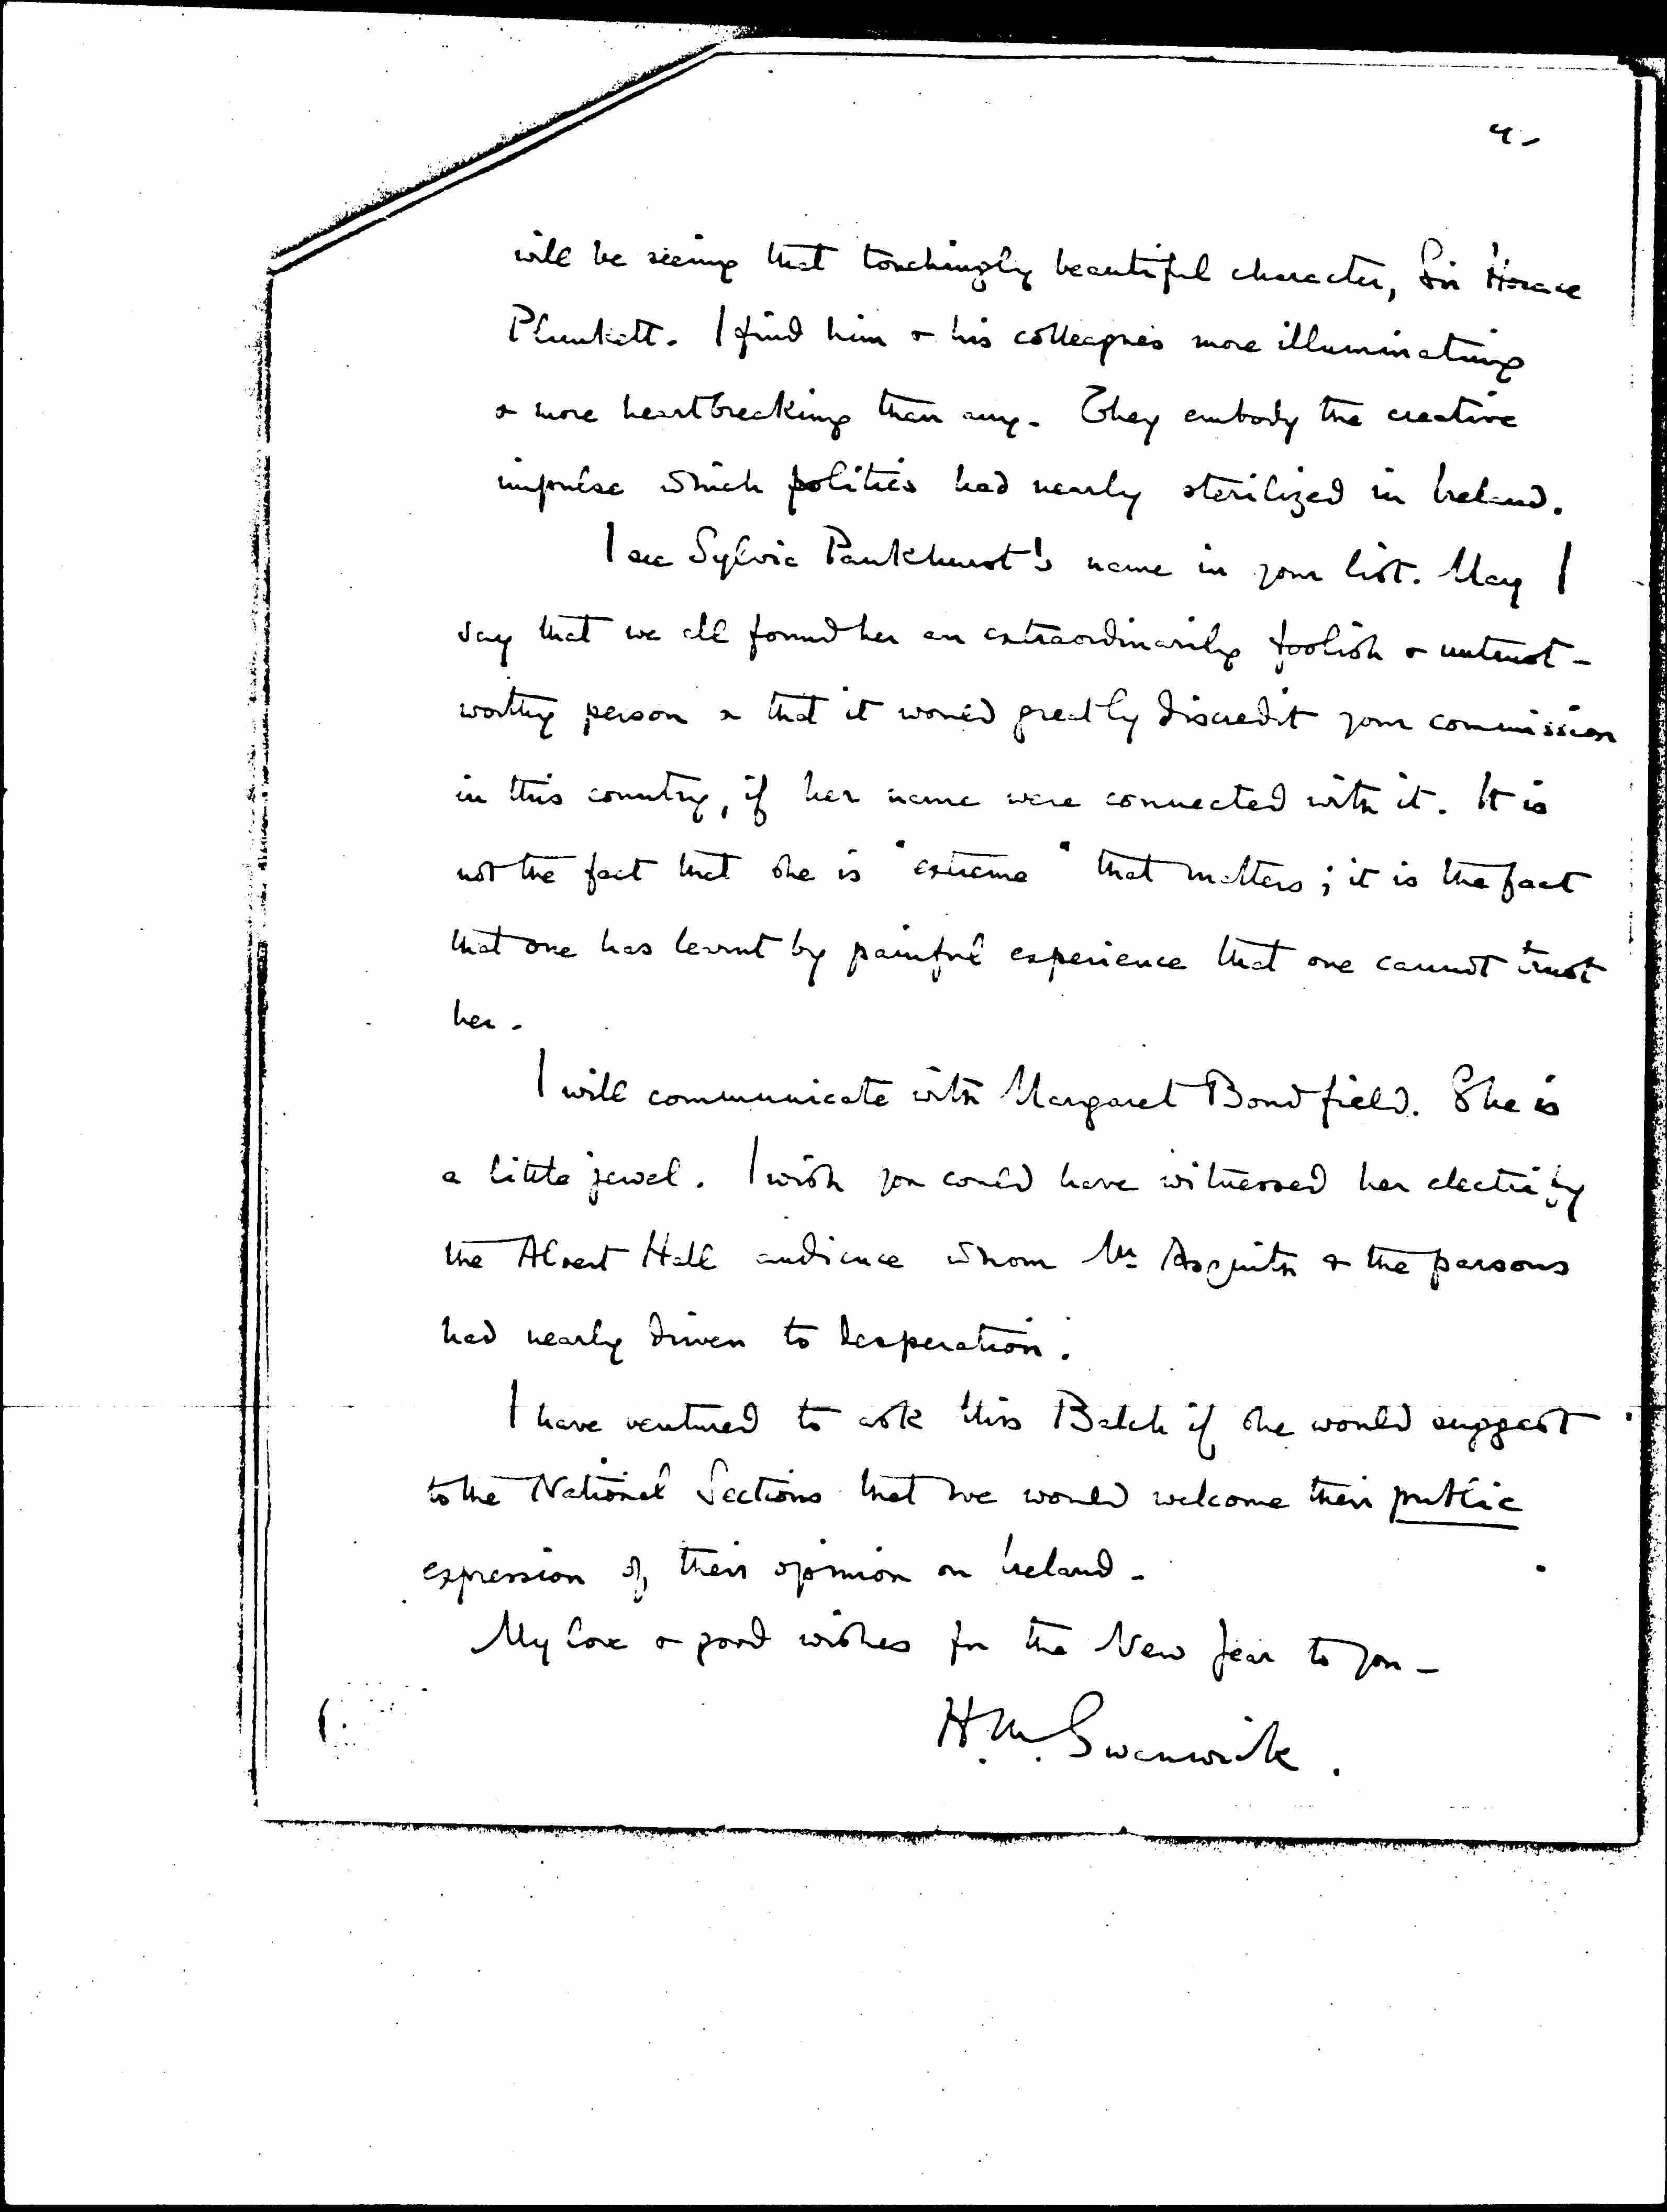 4-
will be seeing that touchingly beautiful character, Sir Horace
Plunkett. I find him & his colleagues more illuminating
& more heartbreaking than any. They embody the creative
impulse which politics had nearly sterilized in Ireland.
I see Sylvia Pankhurst's name in your list. May I
say that we all found her an extraordinarily foolish & untrust-
worthy person & that it would greatly discredit your commission
in this country, if her name were connected with it. It is
not the fact that she is "extreme" that matters; it is the fact
that one has learnt by painful experience that one cannot trust
her.
I will communicate with Margaret Bondfield. She is
a little jewel. I wish you could have witnessed her electrify
the Albert Hall audience whom Mr Asquith & the parsons
had nearly driven to desperation.
I have ventured to ask Miss Balch if she would suggest
to the National Sections that we would welcome their public
expression of their opinion on Ireland.
My love & good wishes for the New Year to you -
H.M. Swanwick.